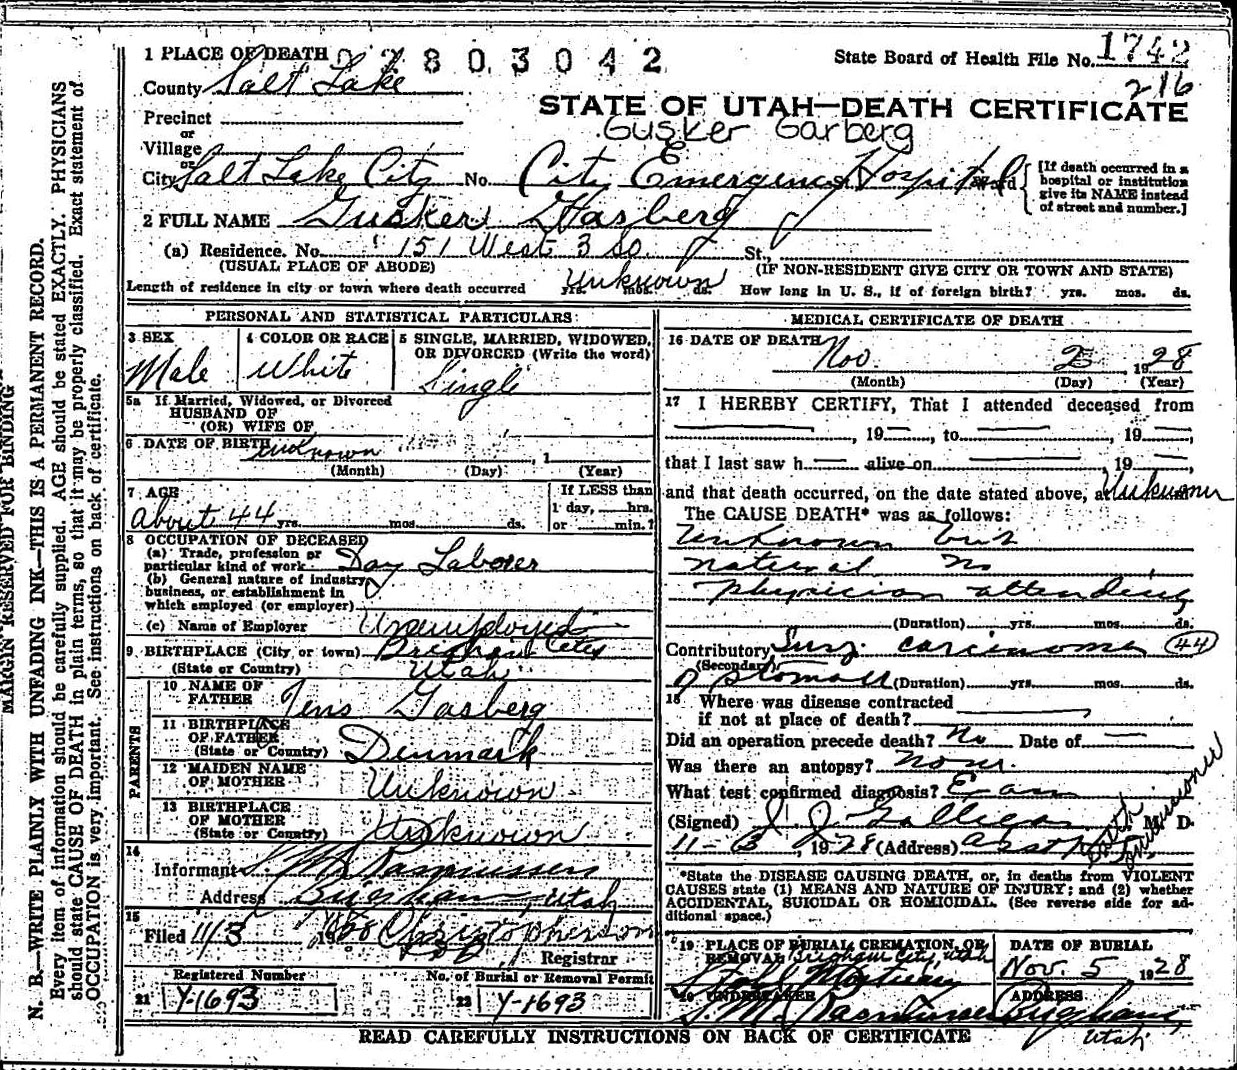 1 PLACE OF DEATH 2 7 8 0 3 0 4 2
State Board of Health File No. 1742
216
County Salt Lake
STATE OF UTAH—DEATH CERTIFICATE
Precinct
Gusker Garberg
or
Village
or
City Salt Lake City No. City Emergency Hospital Ward
[If death occurred in a
hospital or institution
give its NAME instead
of street and number.]
2 FULL NAME Gusker Garberg
(a) Residence. No. 151 West 3 So. St.,
(USUAL PLACE OF ABODE) (IF NON-RESIDENT GIVE CITY OR TOWN AND STATE)
Length of residence in city or town where death occurred Unknown yrs. mos. ds. How long in U. S., if of foreign birth? yrs. mos. ds.
PERSONAL AND STATISTICAL PARTICULARS
3 SEX
Male
4 COLOR OR RACE
White
5 SINGLE, MARRIED, WIDOWED,
OR DIVORCED (Write the word)
Single
5a If Married, Widowed, or Divorced
HUSBAND OF
(OR) WIFE OF
6 DATE OF BIRTH unknown , 1
(Month) (Day) (Year)
7 AGE
about 44 yrs. mos. ds.
If LESS than
1 day, hrs.
or min.?
8 OCCUPATION OF DECEASED
(a) Trade, profession or
particular kind of work Day Laborer
(b) General nature of industry,
business, or establishment in
which employed (or employer)
(c) Name of Employer Unemployed
9 BIRTHPLACE (City or town) Brigham City
(State or Country) Utah
PARENTS
10 NAME OF
FATHER Jens Garberg
11 BIRTHPLACE
OF FATHER
(State or Country) Denmark
12 MAIDEN NAME
OF MOTHER Unknown
13 BIRTHPLACE
OF MOTHER
(State or Country) Unknown
14
Informant S. M. Rasmussen
Address Brigham, Utah
15
Filed 11/5 1928 Christopherson
Registrar
Registered Number No. of Burial or Removal Permit
21 Y-1693 22 Y-1693
MEDICAL CERTIFICATE OF DEATH
16 DATE OF DEATH
Nov. 2 , 1928
(Month) (Day) (Year)
17 I HEREBY CERTIFY, That I attended deceased from
, 19 , to , 19 ,
that I last saw h alive on , 19 ,
and that death occurred, on the date stated above, at Unknown m
The CAUSE DEATH* was as follows:
Unknown but
natural no
physician attending
(Duration) yrs. mos. ds.
Contributory carcinoma 44
(Secondary)
of stomach (Duration) yrs. mos. ds.
18 Where was disease contracted
if not at place of death?
Did an operation precede death? No Date of
Was there an autopsy? none.
What test confirmed diagnosis? Exam
(Signed) J. J. Galligan M. D.
11-5, 1928 (Address)
*State the DISEASE CAUSING DEATH, or, in deaths from VIOLENT
CAUSES state (1) MEANS AND NATURE OF INJURY; and (2) whether
ACCIDENTAL, SUICIDAL OR HOMICIDAL. (See reverse side for ad-
ditional space.)
19 PLACE OF BURIAL CREMATION, OR
REMOVAL Brigham City, Utah
Stohl Mortuary
DATE OF BURIAL
Nov. 5 1928
20 UNDERTAKER
S. M. Rasmussen
ADDRESS
Brigham,
Utah
READ CAREFULLY INSTRUCTIONS ON BACK OF CERTIFICATE
MARGIN RESERVED FOR BINDING
N. B.—WRITE PLAINLY WITH UNFADING INK—THIS IS A PERMANENT RECORD.
Every item of information should be carefully supplied. AGE should be stated EXACTLY. PHYSICIANS
should state CAUSE OF DEATH in plain terms, so that it may be properly classified. Exact statement of
OCCUPATION is very important. See instructions on back of certificate.